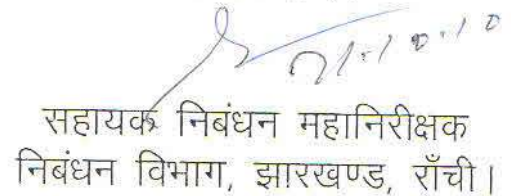 सहायक निबंधन महानिरीक्षक
निबंधन विभाग, झारखण्ड, राँची।